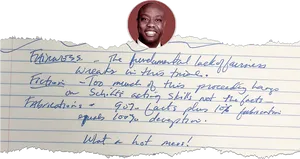 Fairness - The fundamental lack of fairness
wreaks in this trial.
Fiction - Too much of this proceeding hangs
on Schiff's acting skills not the facts
Fabrications = 90% facts plus 10% fabrication
equals 100% deception.
What a hot mess!